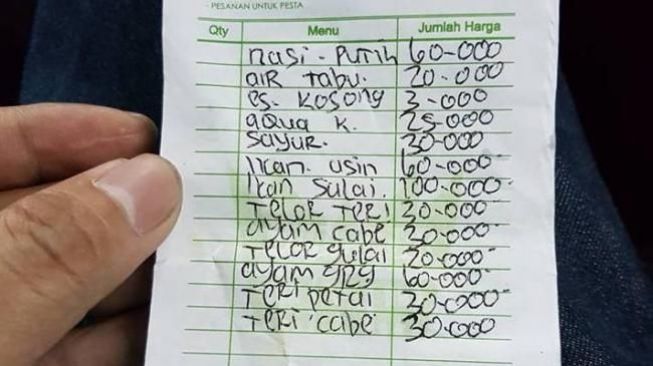 - PESANAN UNTUK PESTA
Qty Menu Jumlah Harga
nasi - PUTIH 60-000
aiR Tabu. 20-000
es. KOSONG 3-000
aqua K. 25-000
Sayur. 30-000
Ikan. usin 60-000
Ikan Sulai. 100-000
TeLOR TeRI 30-000
ayam cabe 30-000
TeLOR gulai 20-000
ayam grg 60-000
TeRI petai 30-000
TeRI cabe 30-000